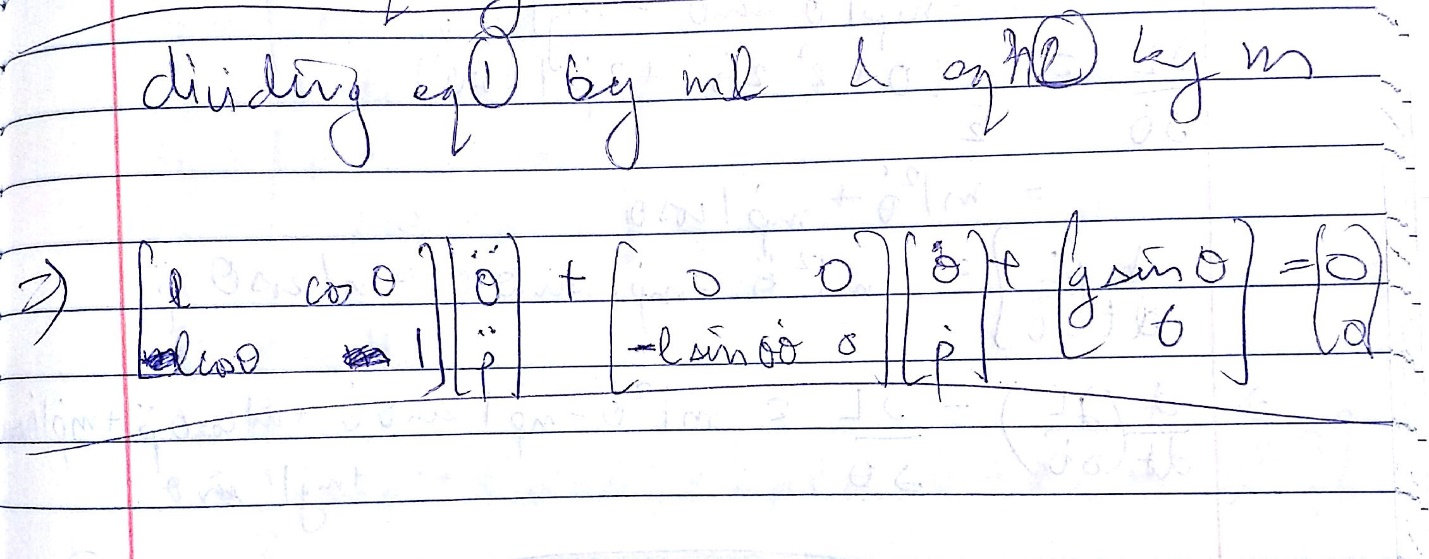 dividing eq ① by ml & eqn ② by m
⇒ [l cos θ; l cos θ 1] [θ̈; p̈] + [0 0; -l sin θ θ̇ 0] [θ̇; ṗ] + [g sin θ; 0] = [0; 0]